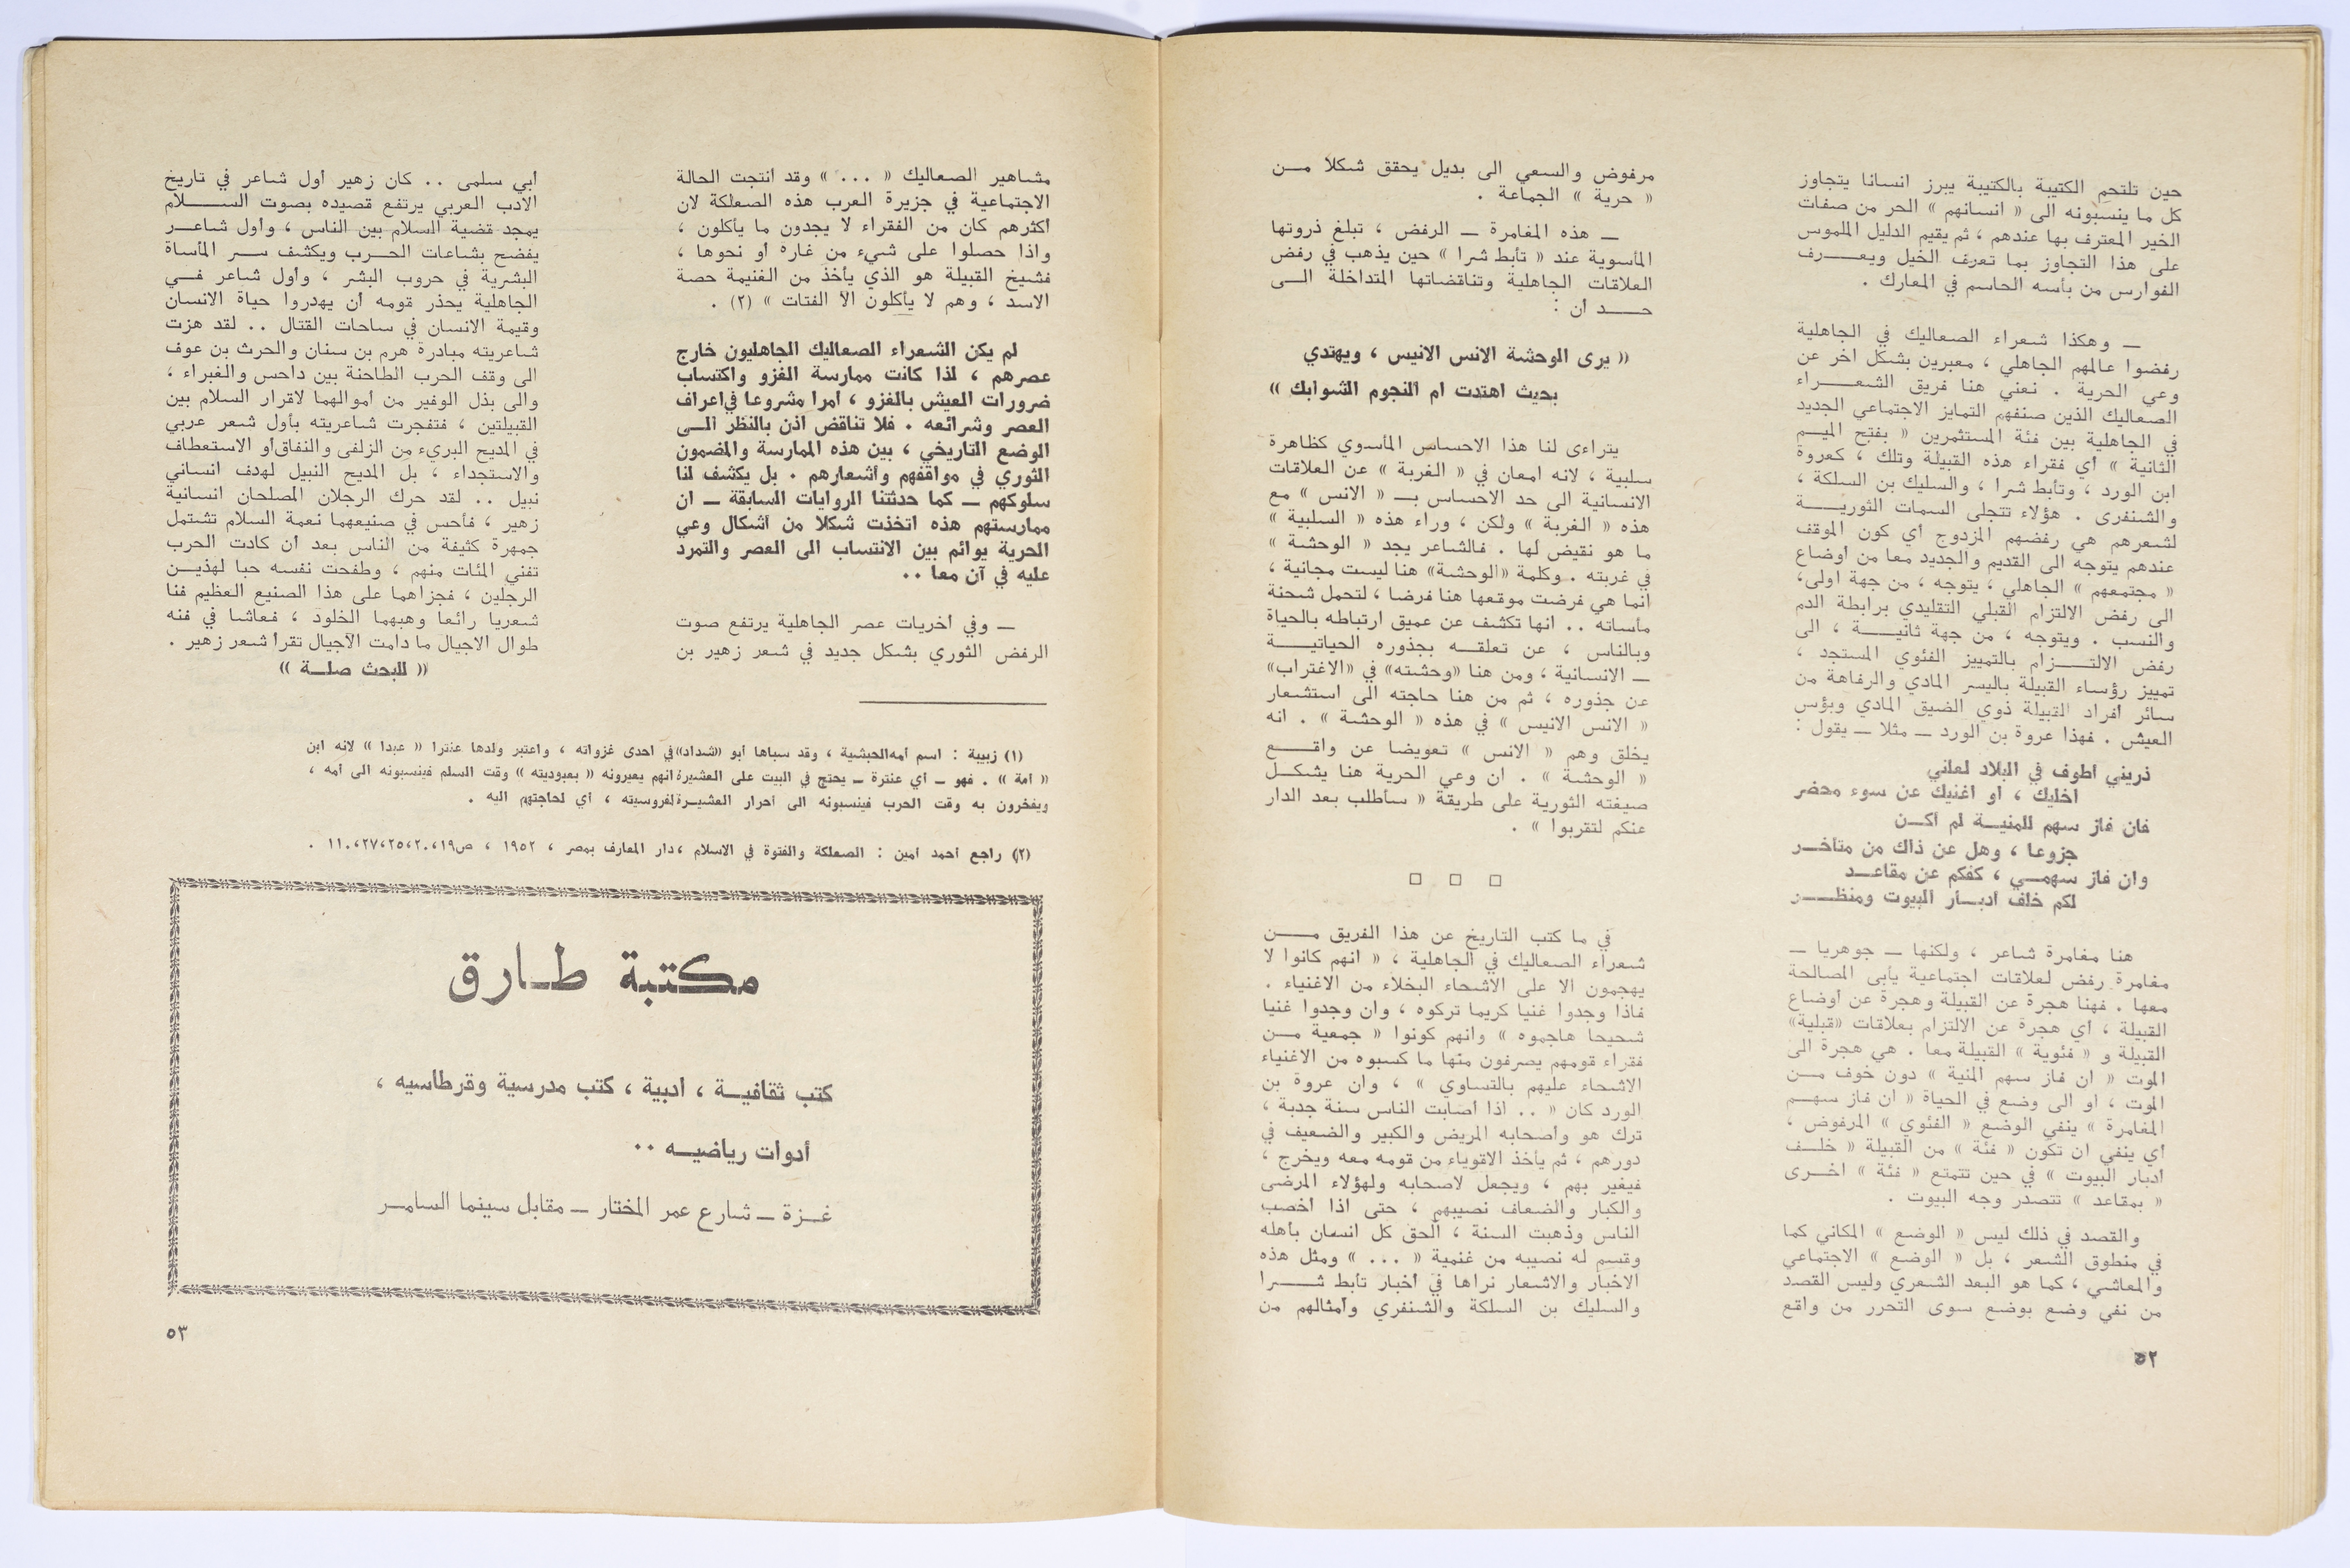 حين تلتحم الكتيبة بالكتيبة يبرز انسانا يتجاوز
كل ما ينسبونه الى « انسانهم » الحر من صفات
الخير المعترف بها عندهم ، ثم يقيم الدليل الملموس
على هذا التجاوز بما تعرف الخيل ويعـــرف
الفوارس من بأسه الحاسم في المعارك .
ـ وهكذا شعراء الصعاليك في الجاهلية
رفضوا عالمهم الجاهلي ، معبرين بشكل اخر عن
وعي الحرية . نعني هنا فريق الشعـــراء
الصعاليك الذين صنفهم التمايز الاجتماعي الجديد
في الجاهلية بين فئة المستثمرين « بفتح الميـم
الثانية » أي فقراء هذه القبيلة وتلك ، كعروة
ابن الورد ، وتأبط شرا ، والسليك بن السلكة ،
والشنفرى . هؤلاء تتجلى السمات الثوريـــة
لشعرهم هي رفضهم المزدوج أي كون الموقف
عندهم يتوجه الى القديم والجديد معا من أوضاع
« مجتمعهم » الجاهلي ، يتوجه ، من جهة اولى،
الى رفض الالتزام القبلي التقليدي برابطة الدم
والنسب . ويتوجه ، من جهة ثانيـــة ، الى
رفض الالتـــزام بالتمييز الفئوي المستجد ،
تمييز رؤساء القبيلة باليسر المادي والرفاهة من
سائر أفراد القبيلة ذوي الضيق المادي وبؤس
العيش . فهذا عروة بن الورد ـ مثلا ـ يقول :
ذريني أطوف في البلاد لعلني
أخليك ، أو أغنيك عن سوء محضر
فان فاز سهم للمنيـة لم أكـن
جزوعا ، وهل عن ذاك من متأخـر
وان فاز سهمـي ، كفكم عن مقاعـد
لكم خلف أدبـار البيوت ومنظـــر
هنا مغامرة شاعر ، ولكنها ـ جوهريا ـ
مغامرة رفض لعلاقات اجتماعية يأبى المصالحة
معها . فهنا هجرة عن القبيلة وهجرة عن أوضاع
القبيلة ، أي هجرة عن الالتزام بعلاقات «قبلية»
القبيلة و « فئوية » القبيلة معا . هي هجرة الى
الموت « ان فاز سهم المنية » دون خوف مـن
الموت ، او الى وضع في الحياة « ان فاز سهـم
المغامرة » ينفي الوضع « الفئوي » المرفوض ،
أي ينفي ان تكون « فئة » من القبيلة « خلـف
أدبار البيوت » في حين تتمتع « فئة » اخـرى
« بمقاعد » تتصدر وجه البيوت .
والقصد في ذلك ليس « الوضع » المكاني كما
في منطوق الشعر ، بل « الوضع » الاجتماعي
والمعاشي ، كما هو البعد الشعري وليس القصد
من نفي وضع بوضع سوى التحرر من واقع
٥٢
مرفوض والسعي الى بديل يحقق شكلا مـن
« حرية » الجماعة .
ـ هذه المغامرة ـ الرفض ، تبلغ ذروتها
المأسوية عند « تأبط شرا » حين يذهب في رفض
العلاقات الجاهلية وتناقضاتها المتداخلة الـى
حـــد ان :
« يرى الوحشة الانس الانيس ، ويهتدي
بحيث اهتدت ام النجوم الشوابك »
يتراءى لنا هذا الاحساس المأسوي كظاهرة
سلبية ، لانه امعان في « الغربة » عن العلاقات
الانسانية الى حد الاحساس بـ « الانس » مع
هذه « الغربة » ولكن ، وراء هذه « السلبية »
ما هو نقيض لها . فالشاعر يجد « الوحشة »
في غربته . وكلمة «الوحشة» هنا ليست مجانية ،
انما هي فرضت موقعها هنا فرضا ، لتحمل شحنة
مأساته .. انها تكشف عن عميق ارتباطه بالحياة
وبالناس ، عن تعلقـه بجذوره الحياتيـــة
ـ الانسانية ، ومن هنا «وحشته» في «الاغتراب»
عن جذوره ، ثم من هنا حاجته الى استشعار
« الانس الانيس » في هذه « الوحشة » . انه
يخلق وهم « الانس » تعويضا عن واقـــع
« الوحشة » . ان وعي الحرية هنا يشكـل
صيغته الثورية على طريقة « سأطلب بعد الدار
عنكم لتقربوا » .
□ □ □
في ما كتب التاريخ عن هذا الفريق مـــن
شعراء الصعاليك في الجاهلية ، « انهم كانوا لا
يهجمون الا على الاشحاء البخلاء من الاغنياء .
فاذا وجدوا غنيا كريما تركوه ، وان وجدوا غنيا
شحيحا هاجموه » وانهم كونوا « جمعية مـن
فقراء قومهم يصرفون منها ما كسبوه من الاغنياء
الاشحاء عليهم بالتساوي » ، وان عروة بن
الورد كان « .. اذا أصابت الناس سنة جدبة ،
ترك هو وأصحابه المريض والكبير والضعيف في
دورهم ، ثم يأخذ الاقوياء من قومه معه ويخرج ،
فيغير بهم ، ويجعل لاصحابه ولهؤلاء المرضى
والكبار والضعاف نصيبهم ، حتى اذا أخصب
الناس وذهبت السنة ، ألحق كل انسان بأهله
وقسم له نصيبه من غنمية « ... » ومثل هذه
الاخبار والاشعار نراها في أخبار تأبط شـــرا
والسليك بن السلكة والشنفري وأمثالهم من
مشاهير الصعاليك « ... » وقد أنتجت الحالة
الاجتماعية في جزيرة العرب هذه الصعلكة لان
أكثرهم كان من الفقراء لا يجدون ما يأكلون ،
واذا حصلوا على شيء من غارة أو نحوها ،
فشيخ القبيلة هو الذي يأخذ من الغنيمة حصة
الاسد ، وهم لا يأكلون الا الفتات » (٢) .
لم يكن الشعراء الصعاليك الجاهليون خارج
عصرهم ، لذا كانت ممارسة الغزو واكتساب
ضرورات العيش بالغزو ، أمرا مشروعا في أعراف
العصر وشرائعه . فلا تناقض اذن بالنظر الـى
الوضع التاريخي ، بين هذه الممارسة والمضمون
الثوري في مواقفهم وأشعارهم . بل يكشف لنا
سلوكهم ـ كما حدثتنا الروايات السابقة ـ ان
ممارستهم هذه اتخذت شكلا من أشكال وعي
الحرية يوائم بين الانتساب الى العصر والتمرد
عليه في آن معا ..
ـ وفي أخريات عصر الجاهلية يرتفع صوت
الرفض الثوري بشكل جديد في شعر زهير بن
أبي سلمى .. كان زهير أول شاعر في تاريخ
الادب العربي يرتفع قصيده بصوت الســـلام
يمجد قضية السلام بين الناس ، وأول شاعـر
يفضح بشاعات الحـرب ويكشف سـر المأساة
البشرية في حروب البشر ، وأول شاعر فـي
الجاهلية يحذر قومه أن يهدروا حياة الانسان
وقيمة الانسان في ساحات القتال .. لقد هزت
شاعريته مبادرة هرم بن سنان والحرث بن عوف
الى وقف الحرب الطاحنة بين داحس والغبراء ،
والى بذل الوفير من أموالهما لاقرار السلام بين
القبيلتين ، فتفجرت شاعريته بأول شعر عربي
في المديح البريء من الزلفى والنفاق أو الاستعطاف
والاستجداء ، بل المديح النبيل لهدف انساني
نبيل .. لقد حرك الرجلان المصلحان انسانية
زهير ، فأحس في صنيعهما نعمة السلام تشتمل
جمهرة كثيفة من الناس بعد أن كادت الحرب
تفني المئات منهم ، وطفحت نفسه حبا لهذيـن
الرجلين ، فجزاهما على هذا الصنيع العظيم فنا
شعريا رائعا وهبهما الخلود ، فعاشا في فنه
طوال الاجيال ما دامت الاجيال تقرأ شعر زهير .
« للبحث صلـة »
(١) زبيبة : اسم أمه الحبشية ، وقد سباها أبو «شداد» في احدى غزواته ، واعتبر ولدها عنترا « عبدا » لانه ابن
« أمة » . فهو ـ أي عنترة ـ يحتج في البيت على العشيرة انهم يعيرونه « بعبوديته » وقت السلم فينسبونه الى أمه ،
ويفخرون به وقت الحرب فينسبونه الى أحرار العشيـرة لفروسيته ، أي لحاجتهم اليه .
(٢) راجع أحمد أمين : الصعلكة والفتوة في الاسلام ، دار المعارف بمصر ، ١٩٥٢ ، ص١٩،٢٠،٢٥،٢٧،١١٠ .
مكتبة طـارق
كتب ثقافيـة ، أدبية ، كتب مدرسية وقرطاسيه ،
أدوات رياضيـه ..
غـزة ـ شارع عمر المختار ـ مقابل سينما السامـر
٥٣